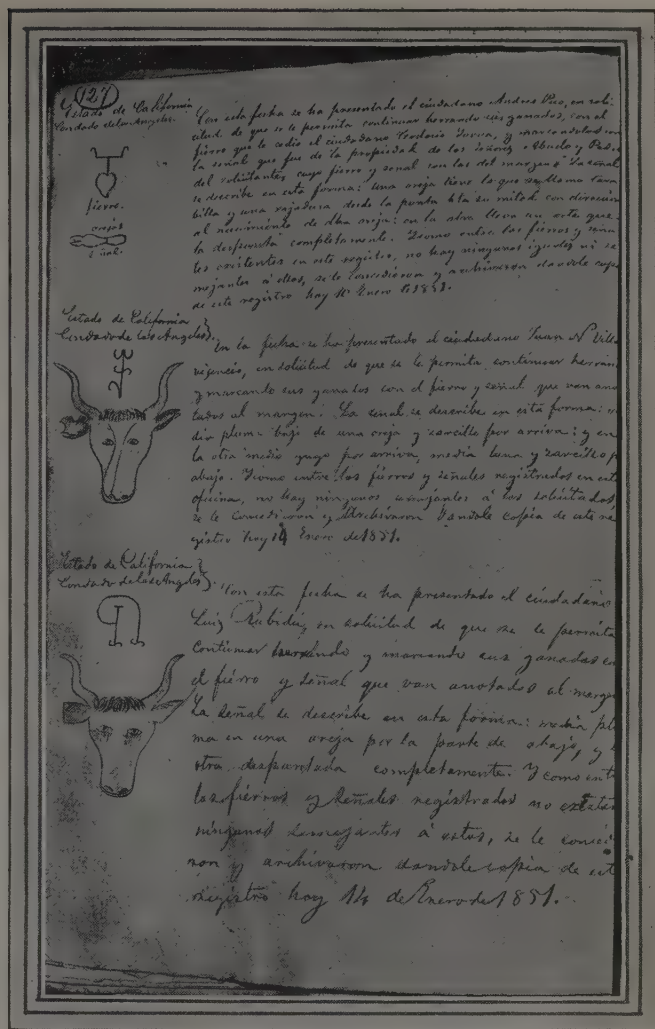 127
Estado de California
Condado de Los Angeles.
fierro.
orejas
señal.
Con esta fecha se ha presentado el ciudadano Andres Pico, en soli-
citud de que se le permita continuar herrando sus ganados, con el
fierro que le cedio el ciudadano Teodocio Yorva, y marcandolos con
la señal que fue de la propiedad de los Señores Abuelo y Padre
del solicitante cuyo fierro y señal con las del margen. La señal
se describe en esta forma: una oreja tiene lo que se llama
y una rajadura desde la punta hta su mitad con direccion
al nacimiento de dha oreja: en la otra lleva
la despunta completamente. Y como entre los fierros y seña-
les existentes en este registro, no hay ningunos iguales ni se-
mejantes á ellos, se le concedieron y archivaron dandole copia
de este registro hoy Enero de 1851.
Estado de California
Condado de Los Angeles.
En la fecha se ha presentado el ciudadano Juan N Villa
vicencio, en solicitud de que se le permita continuar herran
y marcando sus ganados con el fierro y señal que van ano
tados al margen. La señal se describe en esta forma:
pluma bajo de una oreja y zarcillo por arriva; y en
la otra medio yugo por arriva, media luna y zarcillo p
abajo. Y como entre los fierros y señales registrados en esta
oficina, no hay ningunos semejantes á los solicitados
se le concedieron y archivaron dandole copia de este re
gistro hoy 14 Enero de 1851.
Estado de California
Condado de Los Angeles.
Con esta fecha se ha presentado el ciudadano
Luiz Rubidú, en solicitud de que se le permita
continuar herrando y marcando sus ganados con
el fierro y señal que van anotados al margen
La señal se describe en esta forma: media plu
ma en una oreja por la parte de abajo, y
otra despuntada completamente. Y como entre
los fierros y señales registrados no existen
ningunos semejantes á estos, se le concedie
ron y archivaron dandole copia de este
registro hoy 14 de Enero de 1851.